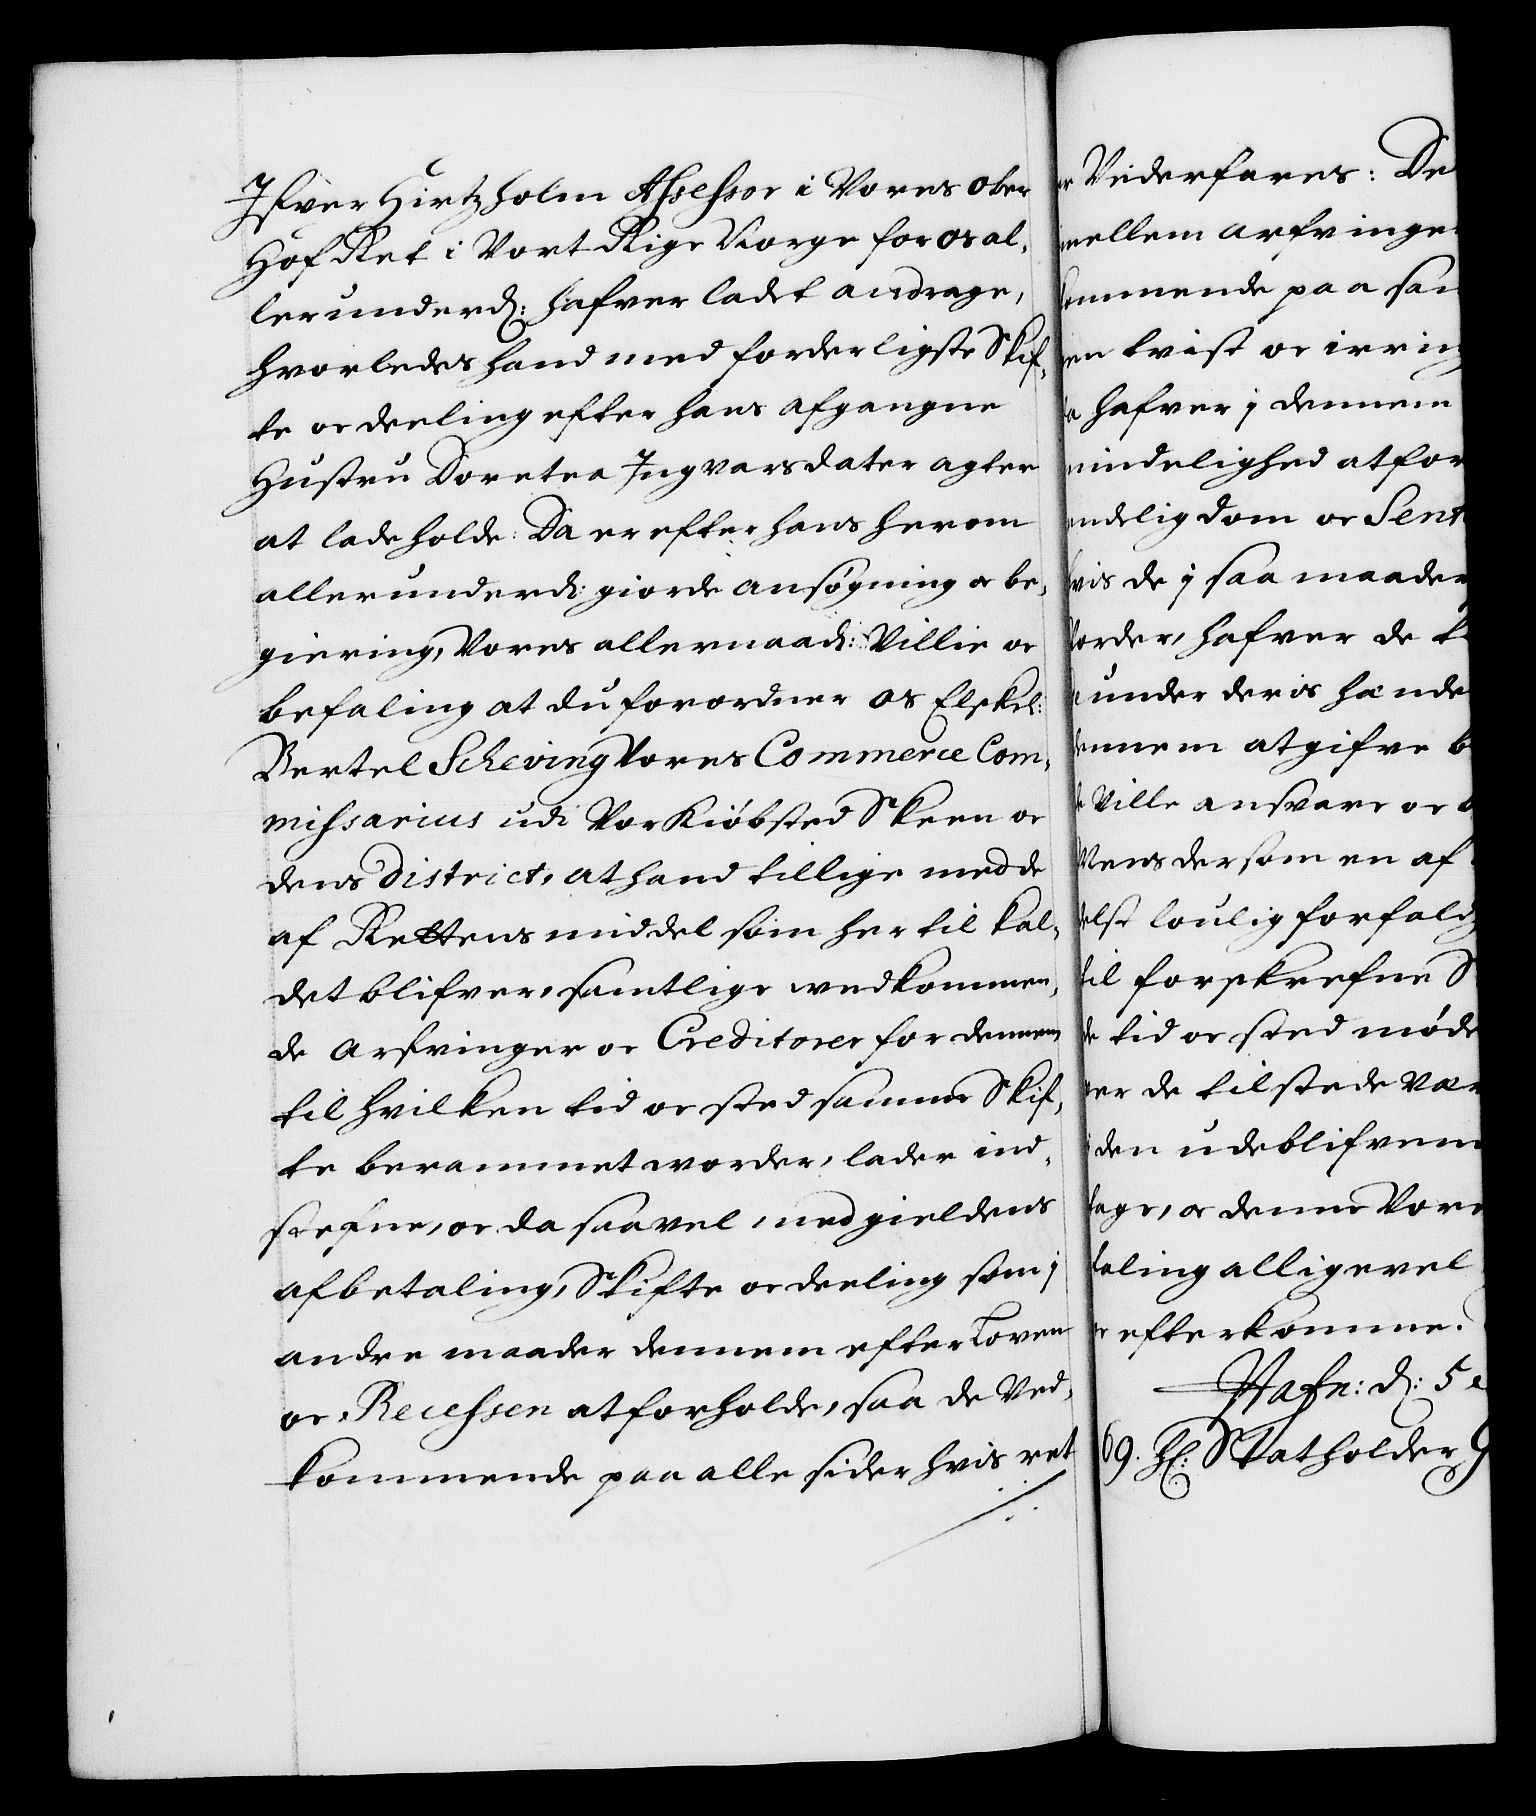 Ifver Hirtzholm Assessor i Vores ober
Hof Ret i Vort Rige Norge for os al,
lerunderd: hafver ladet andrage,
hvorledes hand med forderligste Skif,
te oc deeling efter hans afgangne
Hustru Doretea Ingvarsdater agter
at lade holde: Da er efter hans herom
allerunderd: giorde ansøgning oc be,
giering, Vores allernaad: Villie oc
befaling at du forordner os Elskel:
Bertel Scheving Vores Commerce Com,
missarius udi Vor Kiøbsted Skeen oc
dens District, at hand tillige med de
af Rettens middel som her til kal,
det blifver, samtlige vedkommen,
de Arfvinger oc Creditorer for dennem
til hvilken tid oc sted samme Skif,
te berammet worder, lader ind,
stefne, oc da saavel med gieldens
afbetaling, Skifte oc deeling som j
andre maader dennem efter Loven
oc Recessen at forholde, saa de Ved,
kommende paa alle sider hvis ret
er Viderfares: De
mellem arfvinge
kommende paa sam
en tvist oc irring
da hafver j dennem
mindelighed at for
endelig dom oc Sent
hvis de j saa maader
vorder, hafver de
under deris hænde
dennem at gifve b
de Ville ansvare oc
Mens dersom en af
delst loulig forfald
til forskrefne S
de tid oc sted møde
er de tilstede vær
den udeblifven
tage, oc denne Vore
faling alligevel
oc efterkomme.
Hafn: d: 5
69. H: Statholder G